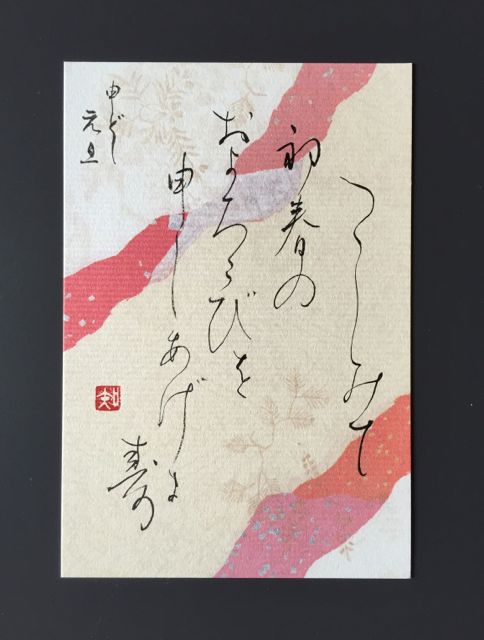 つゝしみて
初春の
およろこびを
申しあげま
寿
申どし
元旦